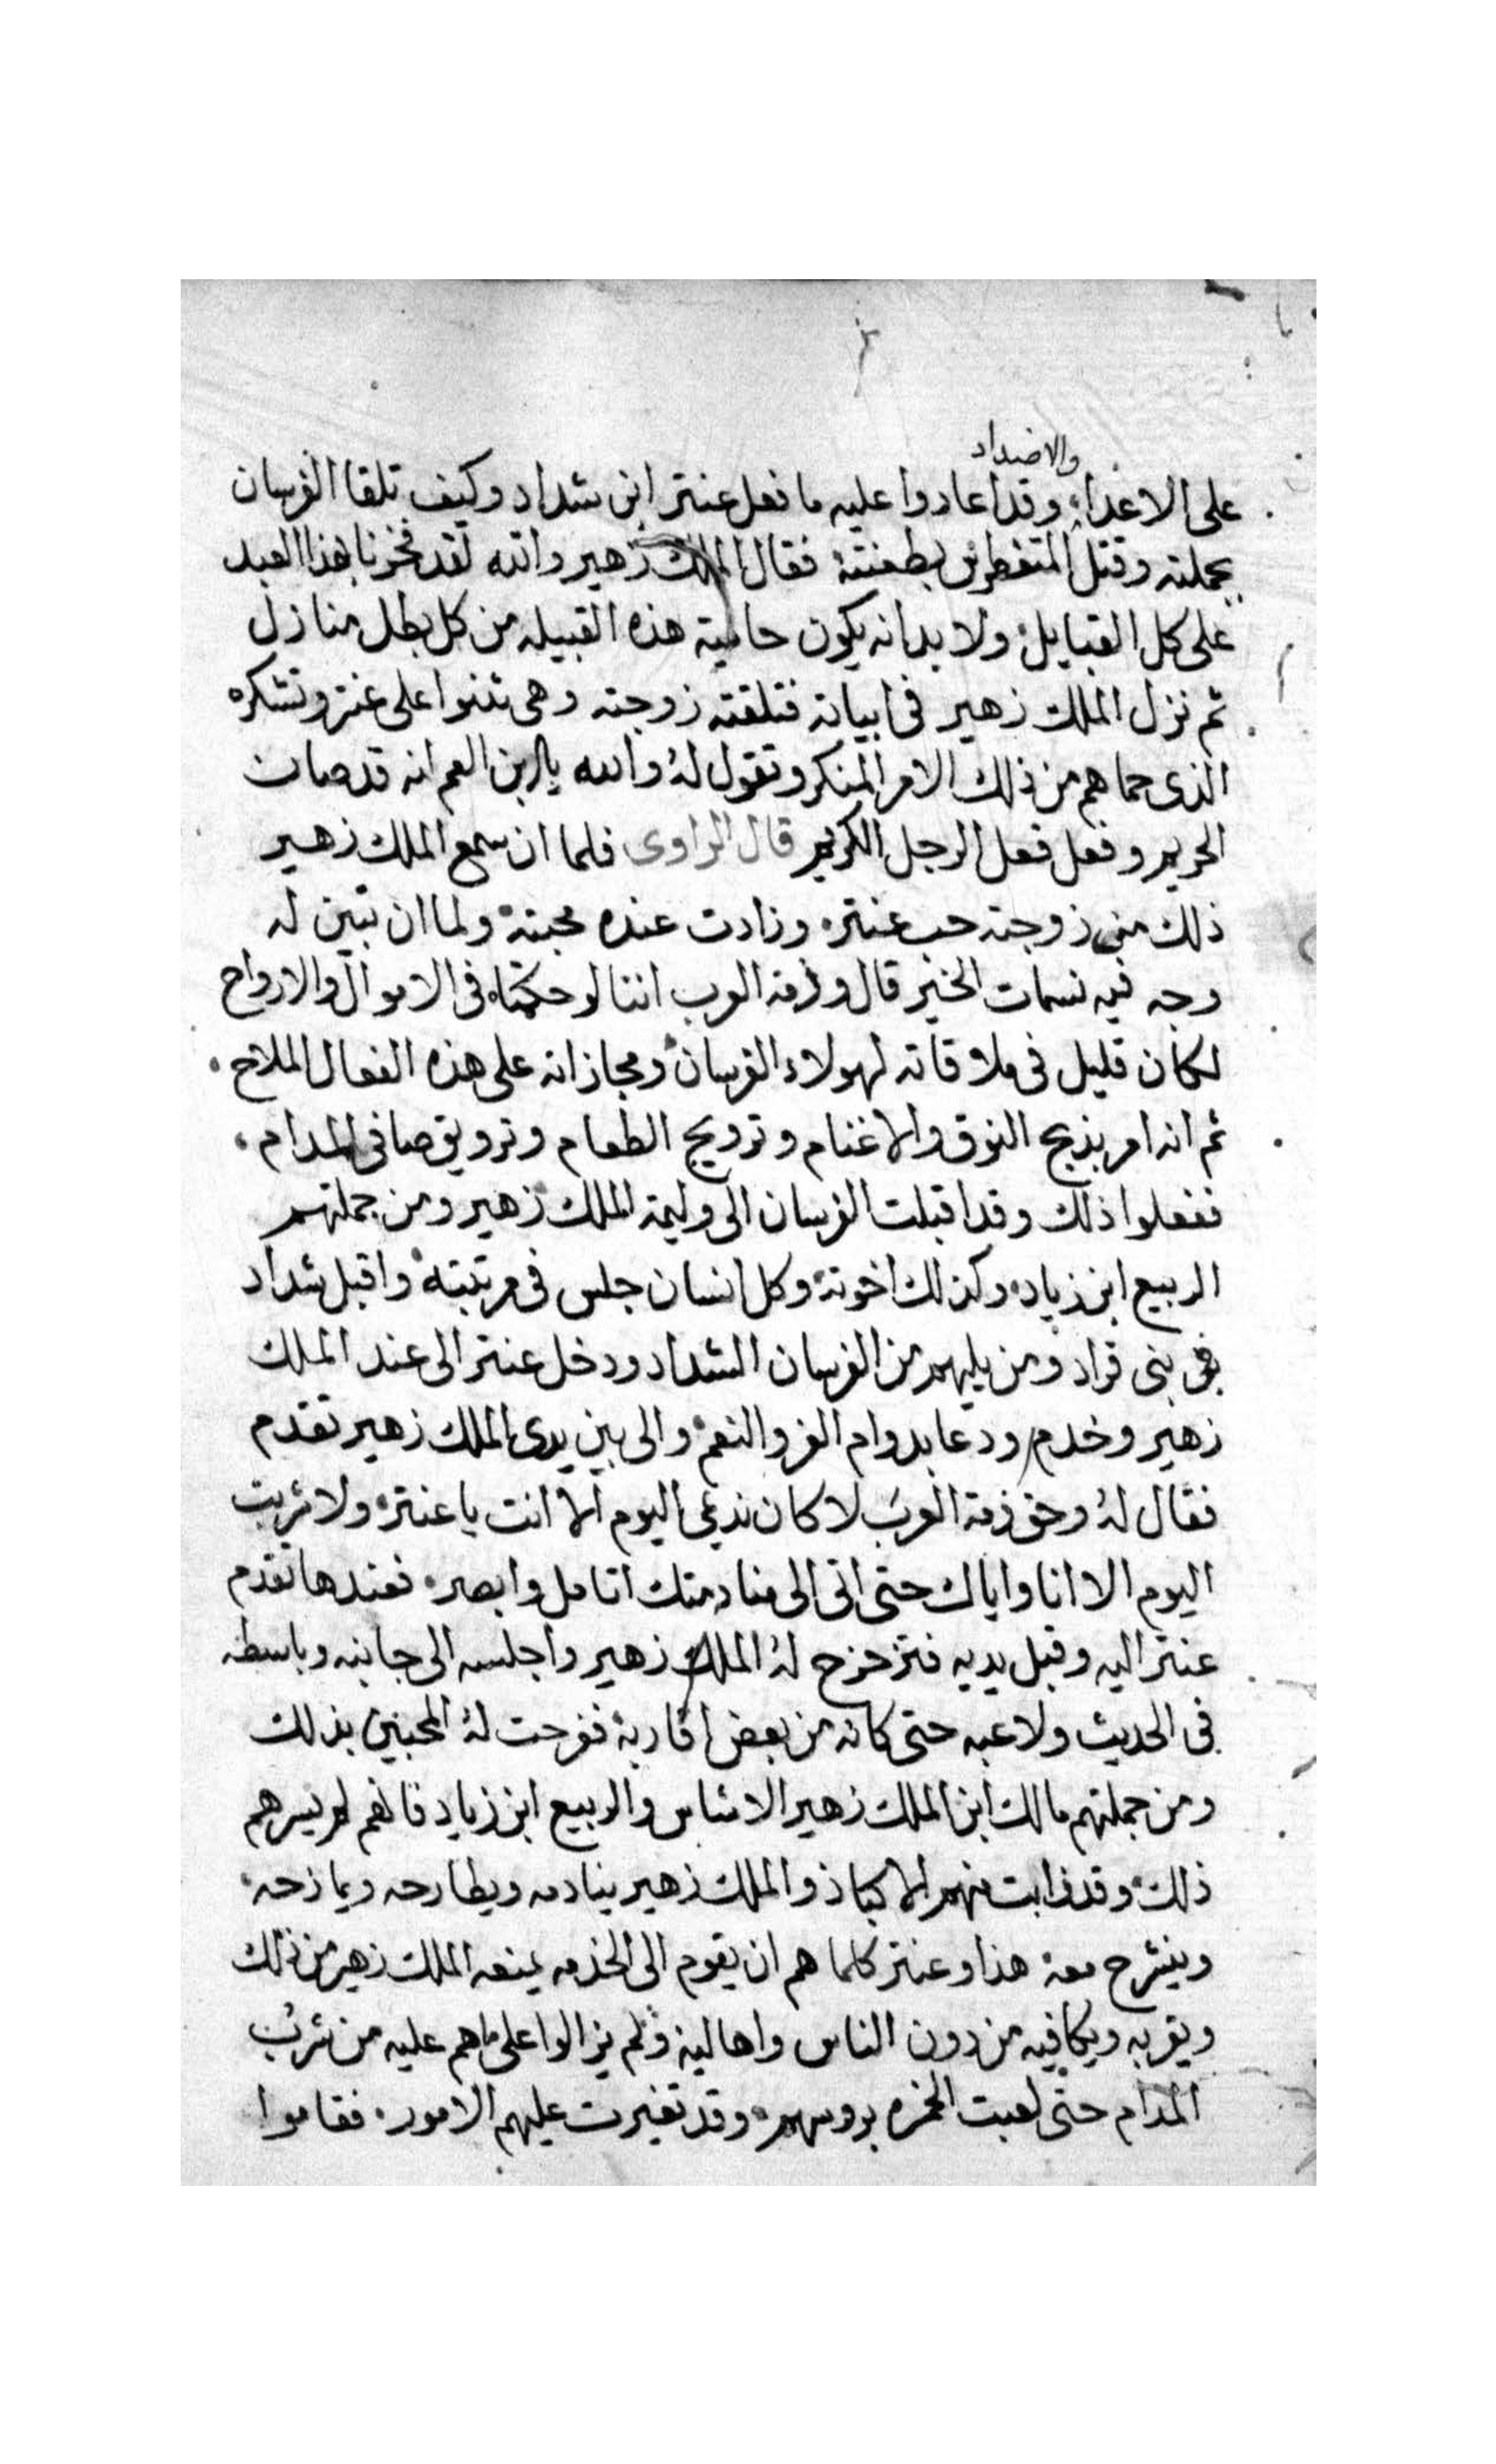 والاضداد
على الاعداء وقد اعادوا عليه ما فعل عنتر ابن شداد وكيف تلقا الفرسان
بحملته وقتل المتغطرس بطعنته فقال الملك زهير والله لقد فخرنا بهذا العبد
على كل القبايل ولا بد انه يكون حامية هذه القبيله من كل بطل منازل
ثم نزل الملك زهير فى ابياته فتلقته زوجته وهى تثنوا على عنتر وتشكره
الذى حماهم من ذلك الامر المنكر وتقول له والله يا ابن العم انه قد صان
الحريم وفعل فعل الرجل الكريم قال الراوى فلما ان سمع الملك زهير
ذلك من زوجته حب عنتر وزادت عنده محبته ولما ان تبين له
وجه فيه نسمات الخير قال وذمة العرب اننا لو حكمناه فى الاموال والارواح
لكان قليل فى ملاقاته لهولاء الفرسان ومجازاته على هذه الفعال الملاح
ثم انه امر بذبح النوق والاغنام وترويج الطعام وترويق صافى المدام
ففعلوا ذلك وقد اقبلت الفرسان الى وليمة الملك زهير ومن جملتهم
الربيع ابن زياد وكذلك اخوته وكل انسان جلس فى مرتبته واقبل شداد
فى بنى قراد ومن يليهم من الفرسان الشداد ودخل عنتر الى عند الملك
زهير وخدم ودعا بدوام العز والنعم والى بين يدى الملك زهير تقدم
فقال له وحق ذمة العرب لا كان نديمى اليوم الا انت يا عنتر ولا شربت
اليوم الا انا واياك حتى انى الى منادمتك اتامل وابصر فعندها تقدم
عنتر اليه وقبل يديه فتزحزح له الملك زهير واجلسه الى جانبه وباسطه
فى الحديث ولاعبه حتى كانه من بعض اقاربه ففرحت له المحبين بذلك
ومن جملتهم مالك ابن الملك زهير الا شاس والربيع ابن زياد فانهم لم يسرهم
ذلك وقد ذابت منهم الاكباد والملك زهير ينادمه ويطارحه ويمازحه
وينشرح معه هذا وعنتر كلما هم ان يقوم الى الخدمه يمنعه الملك زهير من ذلك
ويقربه ويكافيه من دون الناس واهاليه ولم يزالوا على ما هم عليه من شرب
المدام حتى لعبت الخمره بروسهم وقد تغيرت عليهم الامور فقاموا